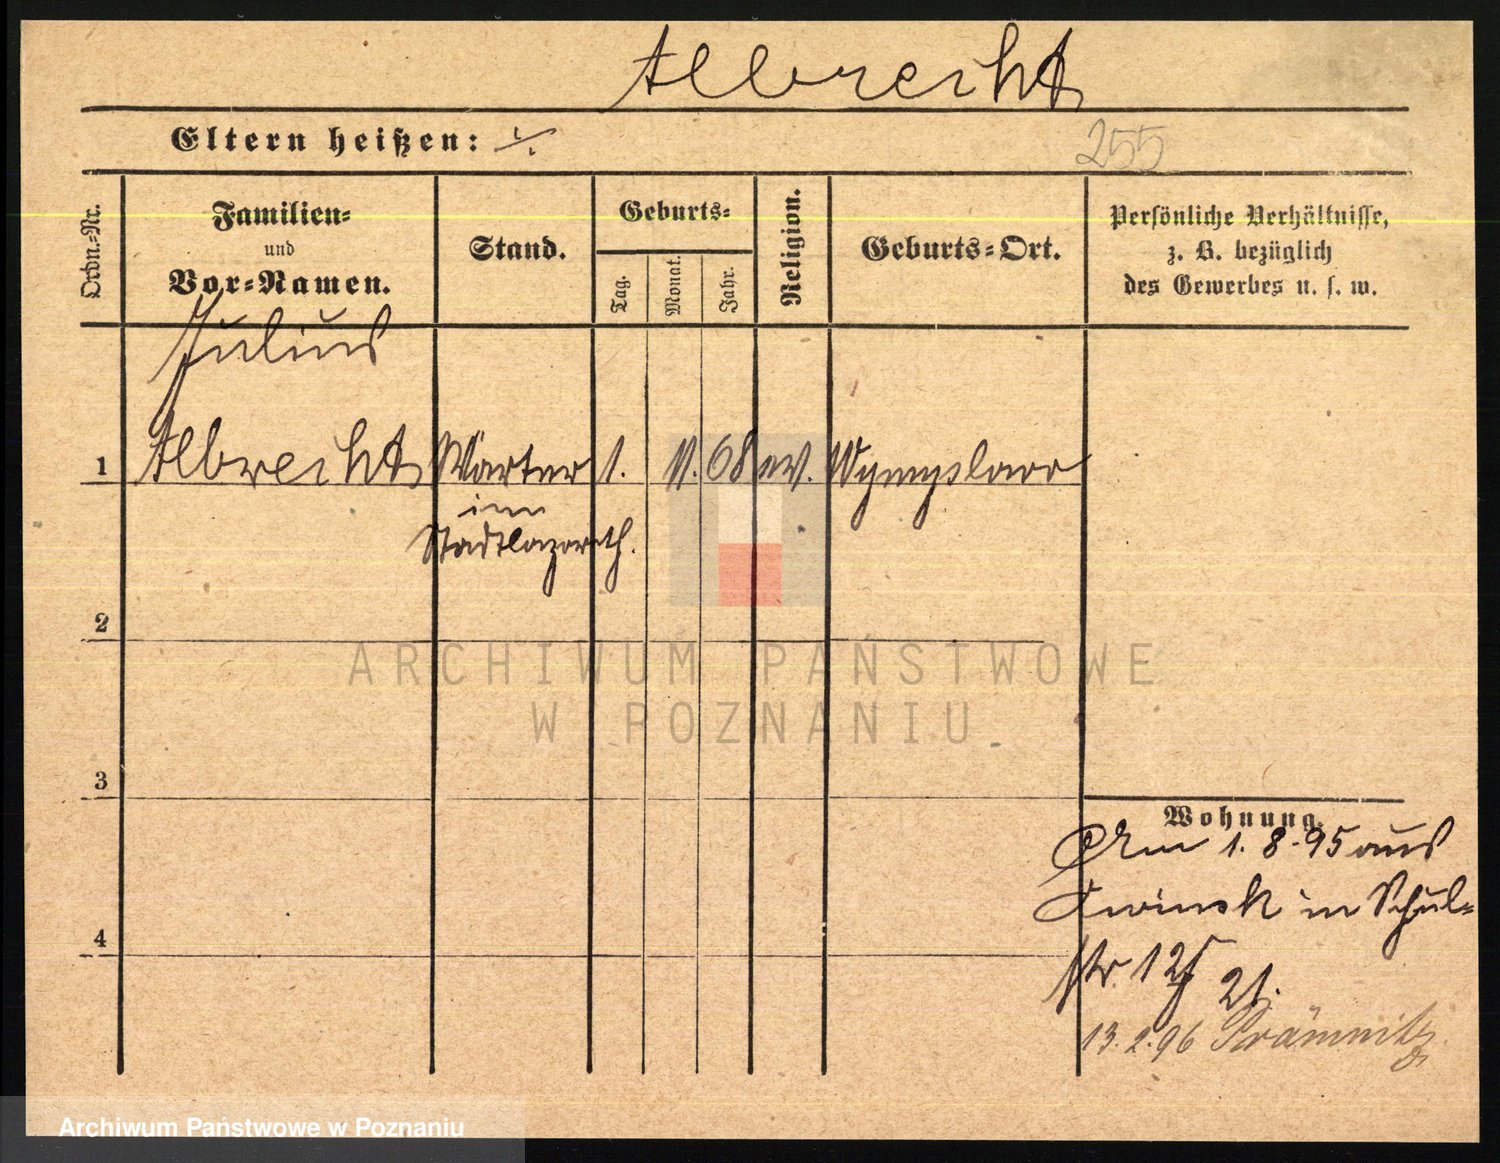 Albrecht
Eltern heißen: ./.
255
Ordn.-Nr.
Familien-
und
Vor-Namen.
Stand.
Geburts-
Tag.
Monat.
Jahr.
Religion.
Geburts-Ort.
Persönliche Verhältnisse,
z. B. bezüglich
des Gewerbes u. s. w.
Julius
1 Albrecht Wärter 1. 11. 68 ev. Wymyslowo
im
Stadtlazareth.
2
3
4
Wohnung.
Am 1. 8. 95 aus
in Schul-
str. 12
21.
13. 2. 96 Prämnitz
ARCHIWUM PAŃSTWOWE
W POZNANIU
Archiwum Państwowe w Poznaniu